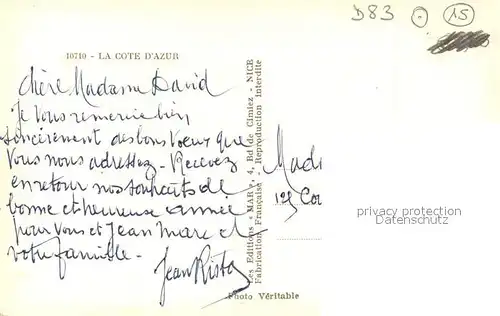 D83 15
10710 - LA COTE D'AZUR
Chère Madame David
Je vous remercie bien
sincèrement des bons voeux que
vous nous adressez - Recevez
en retour nos souhaits de
bonne et heureuse année
pour vous et Jean Marc et
votre famille -
Jean
Les Editions - MAR -, 4, Bd de Cimiez - NICE
Fabrication Française - Reproduction interdite
Photo Véritable
Mad
125 Cou
privacy protection
Datenschutz